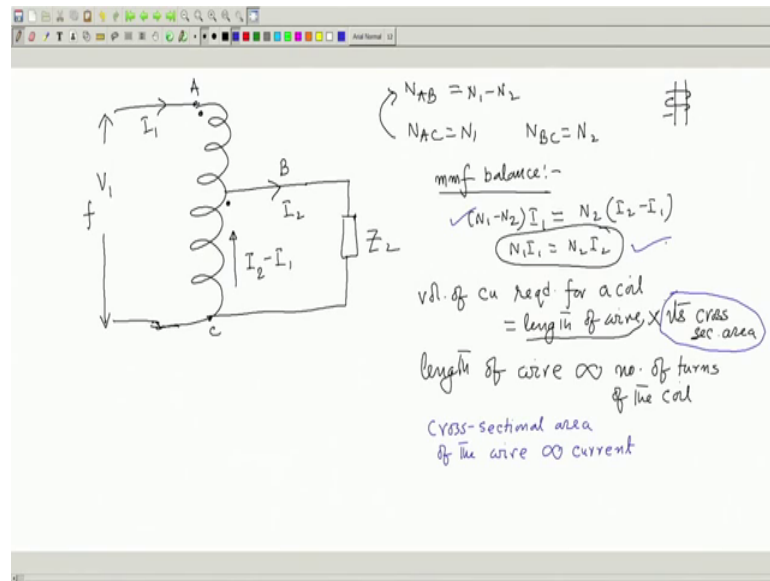 Arial Normal 12
A
I₁
V₁
f
B
I₂
I₂-I₁
Z₂
C
N_AB = N₁-N₂
N_AC = N₁ N_BC = N₂
mmf balance:-
(N₁-N₂)I₁ = N₂(I₂-I₁)
N₁I₁ = N₂I₂
vol. of cu reqd. for a coil
= length of wire × its cross
sec. area
length of wire ∝ no. of turns
of the coil
Cross-sectional area
of the wire ∝ current